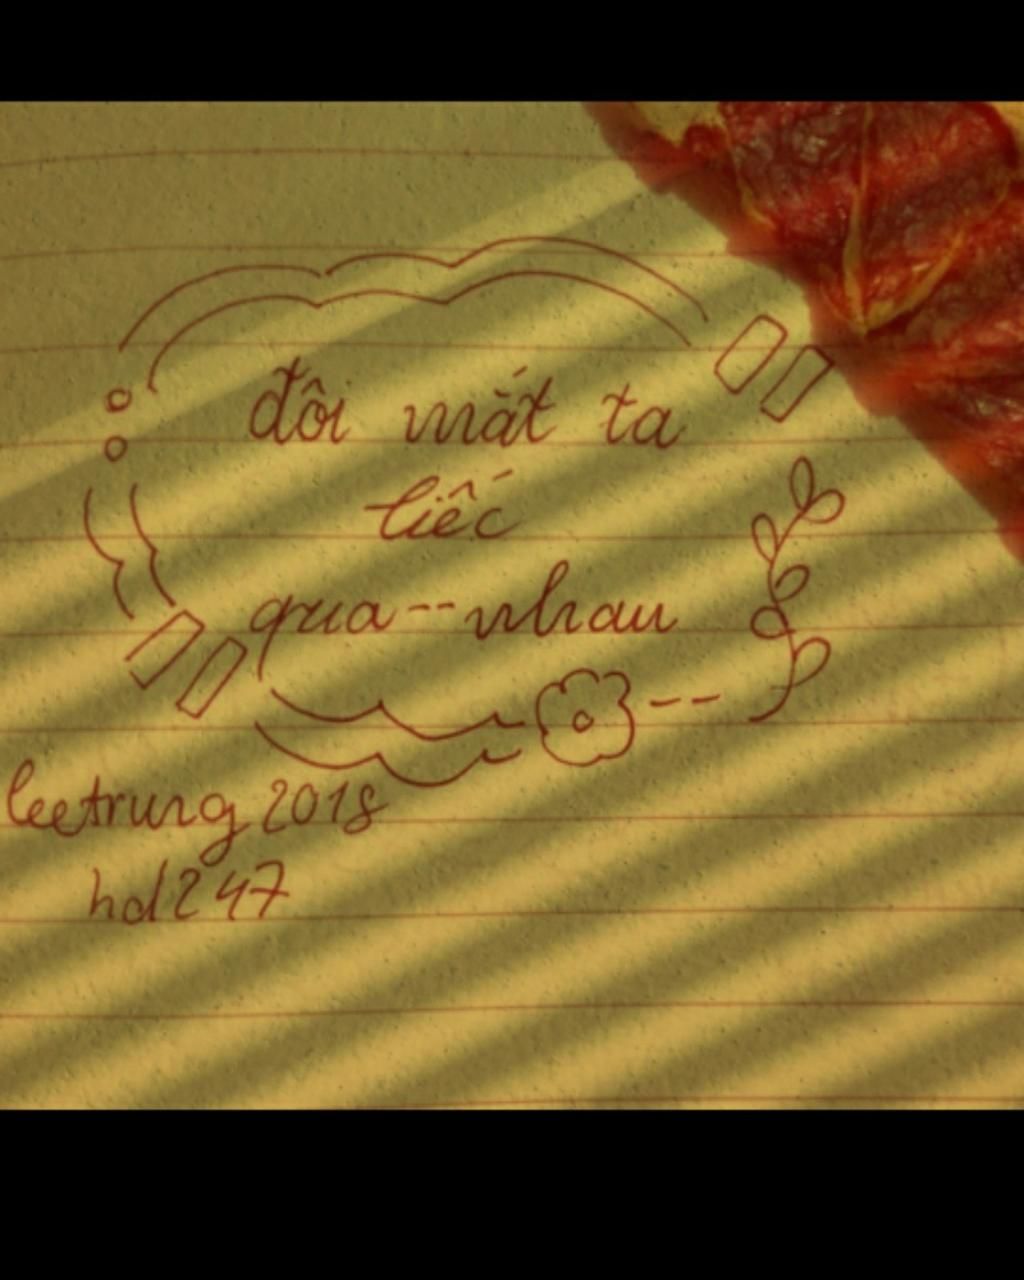 đôi mắt ta
liếc
qua--nhau
leetrung 2018
hd247